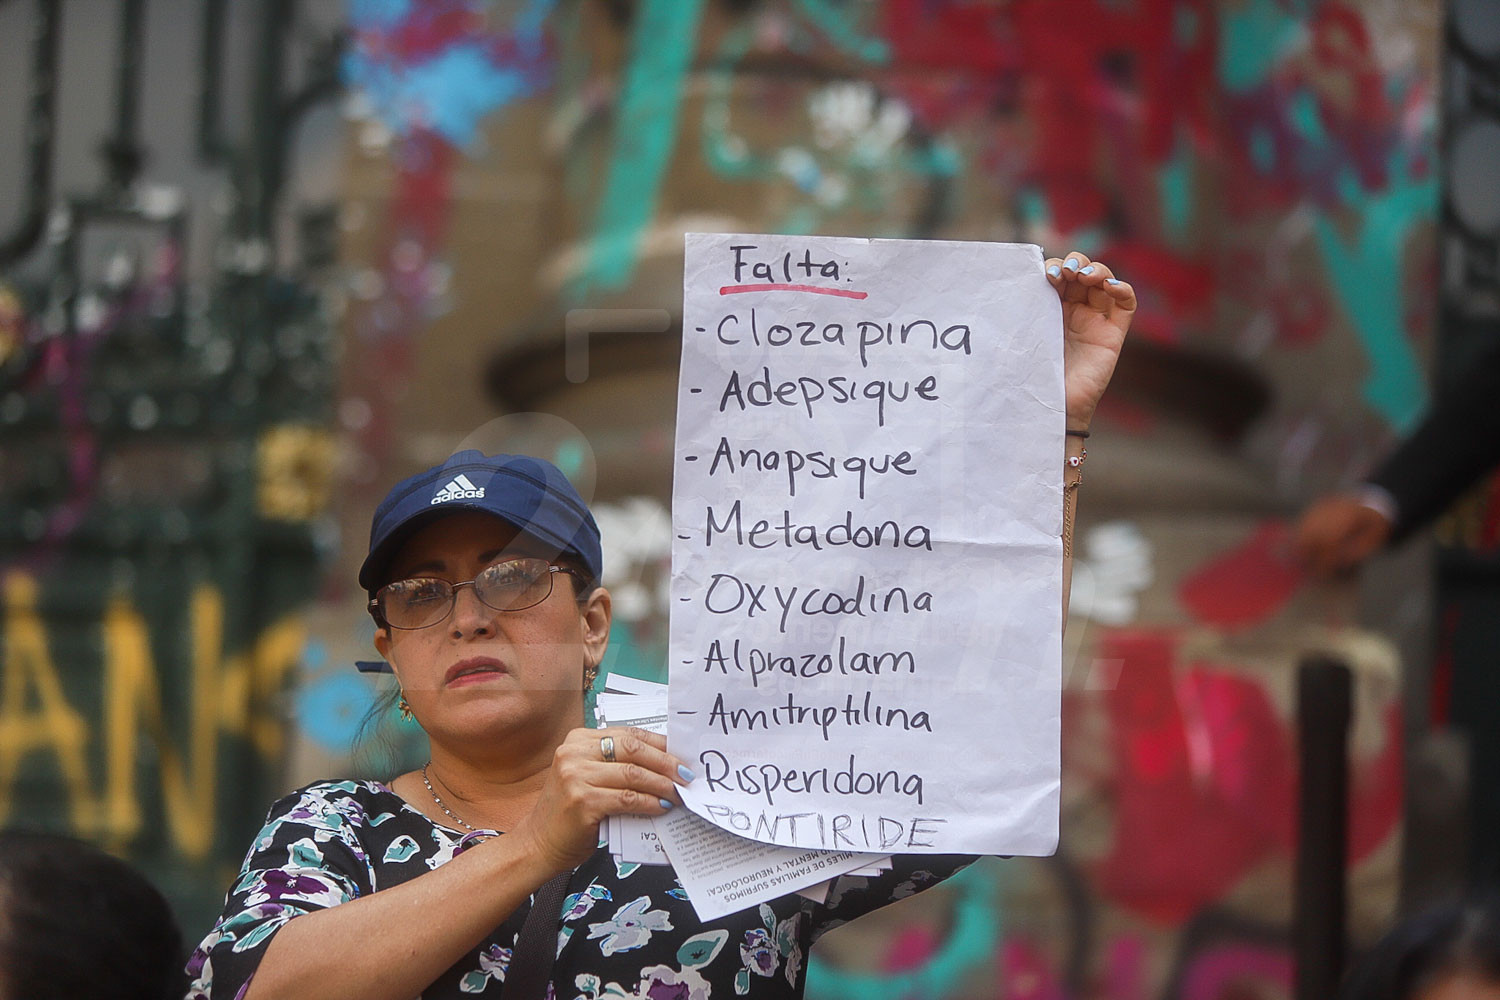 Falta:
- Clozapina
- Adepsique
- Anapsique
- Metadona
- Oxycodina
- Alprazolam
- Amitriptilina
Risperidona
PONTIRIDE
adidas
MILES DE FAMILIAS SUFRIMOS
MENTAL Y NEUROLÓGICA!
AN